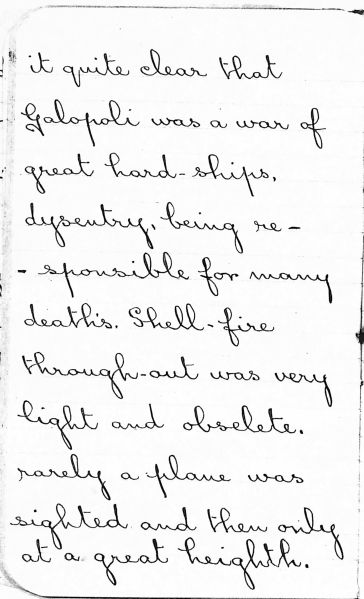 it quite clear that
Galopoli was a war of
great hard-ships,
dysentry, being re-
- sponsible for many
deaths. Shell-fire
through-out was very
light and obselete.
rarely a plane was
sighted and then only
at a great heighth.